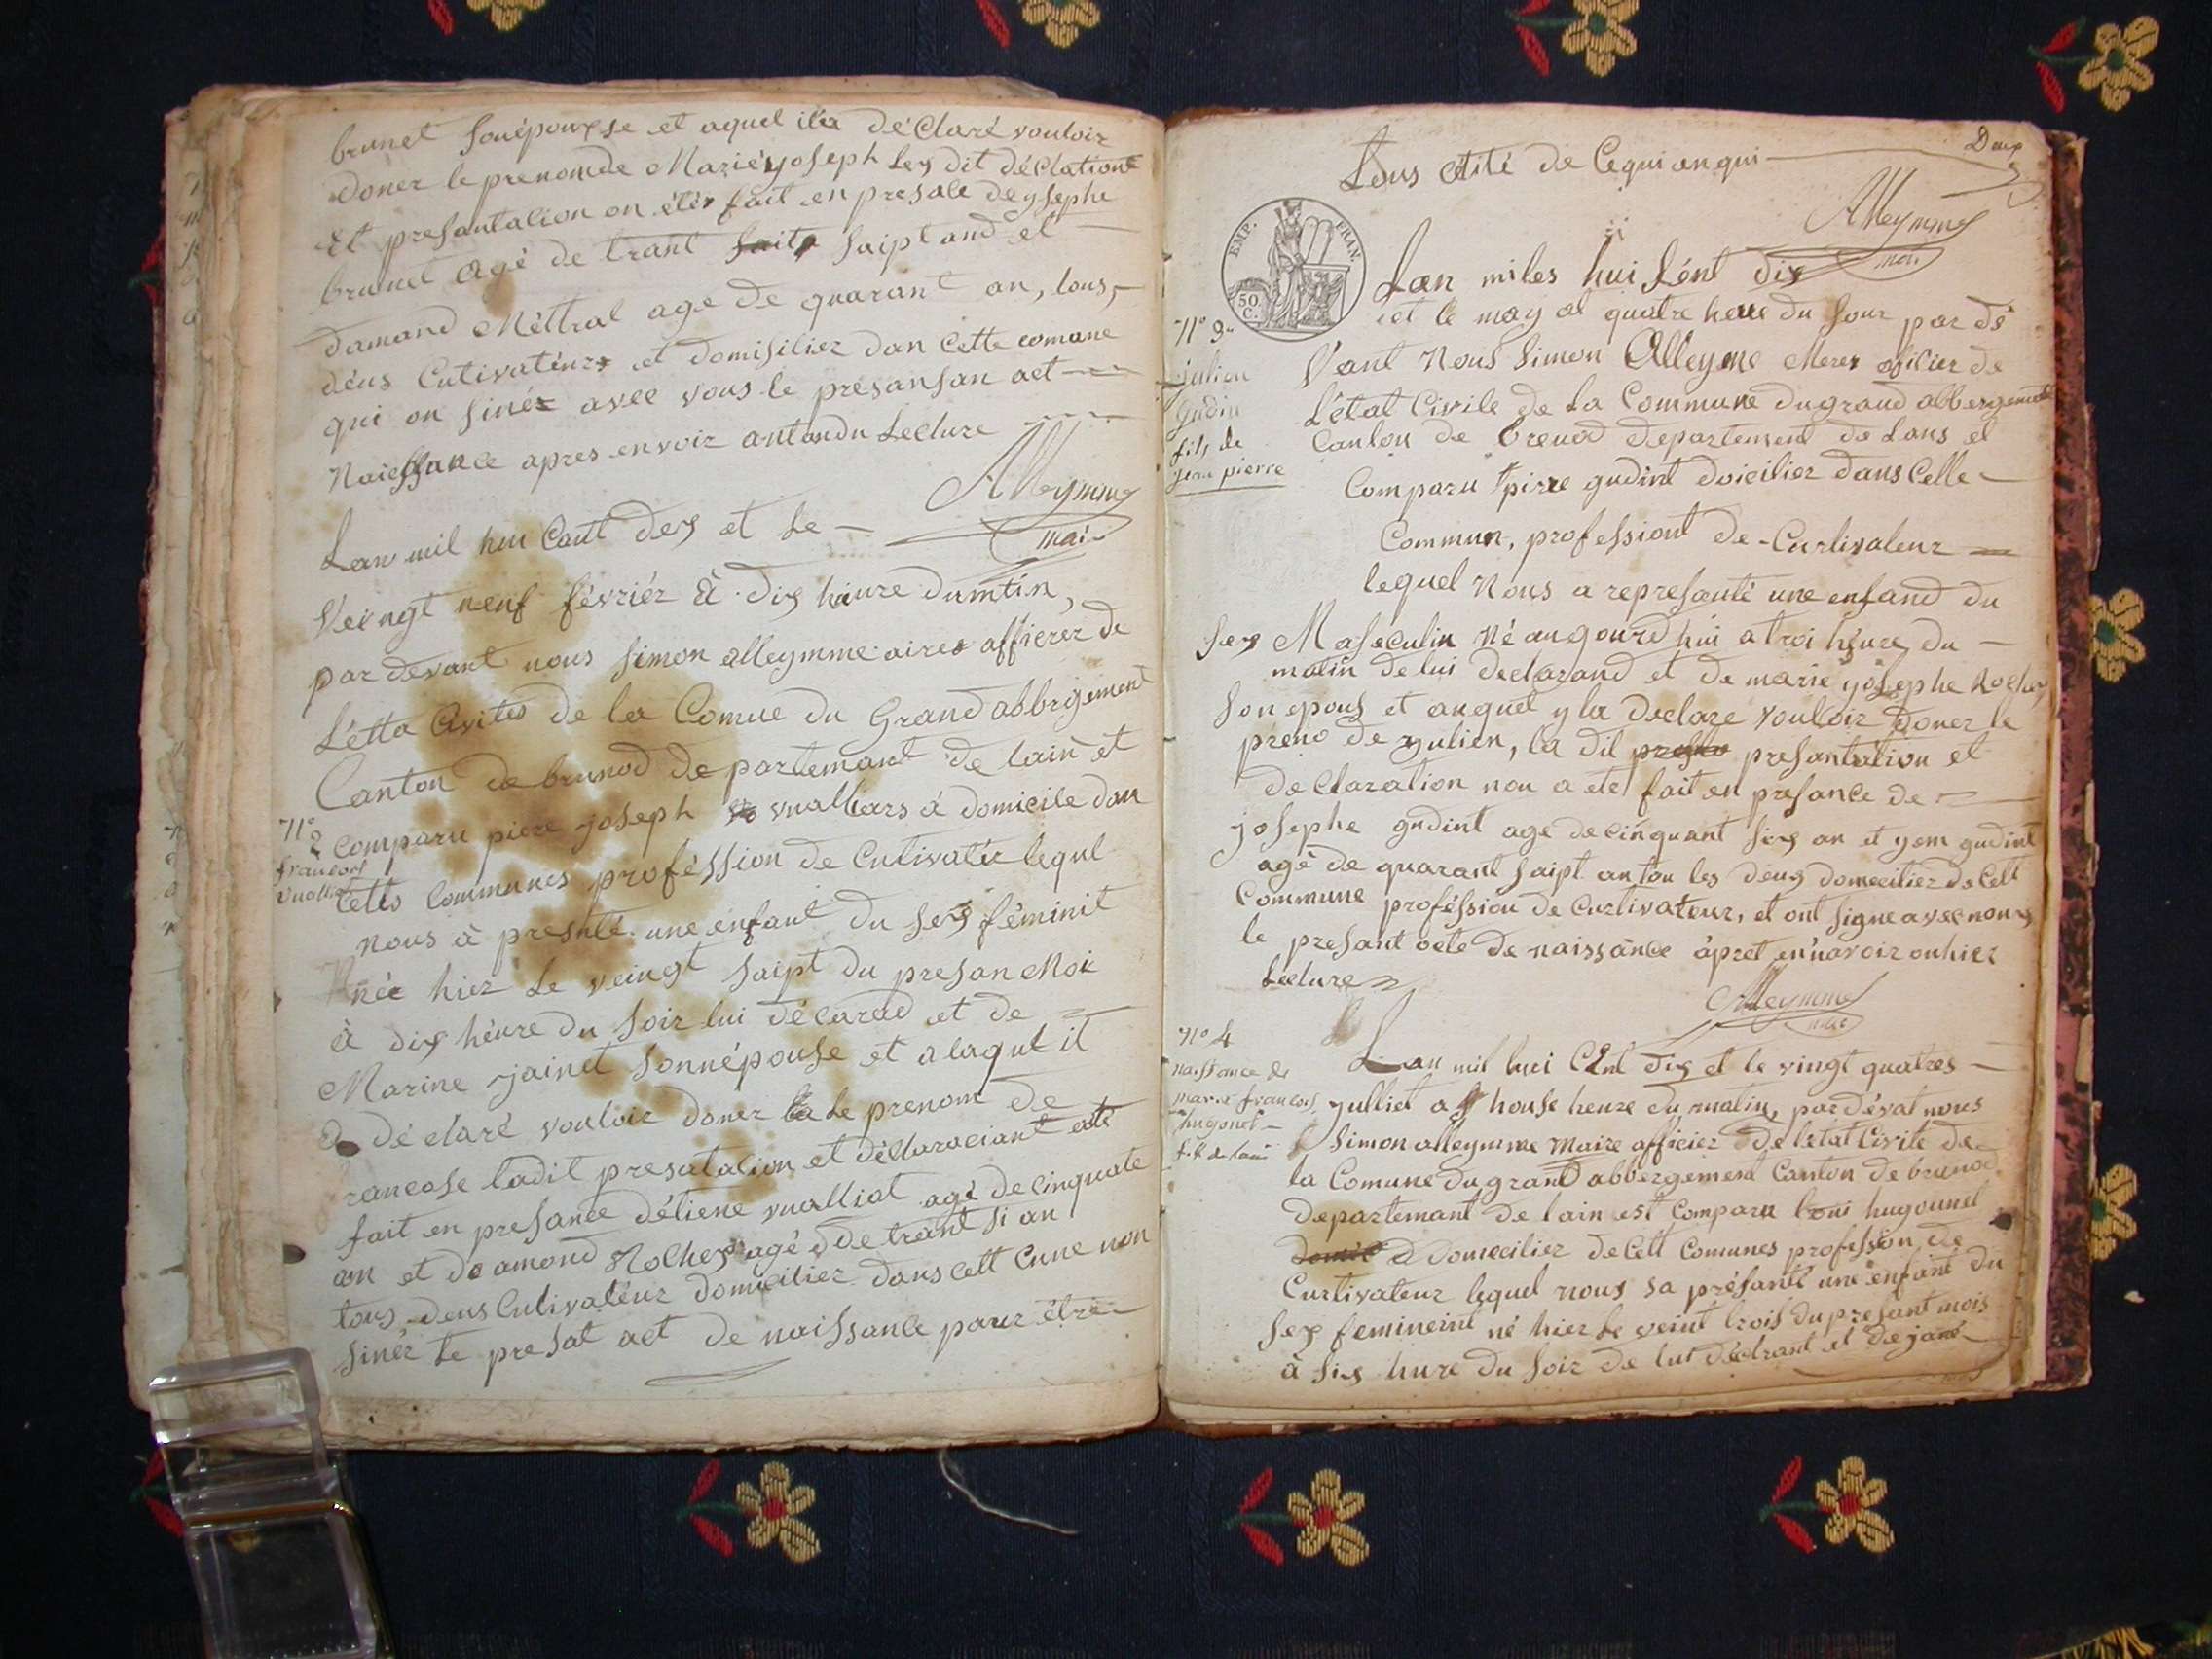 brunet sonépouxse et aquel ila déClaré vouloir
doner le prenomde Mariéyoseph Les dit déclations
Et presantalion on étér fait en presale deysephe
brunet agé de trant saipt and et
damand Méttral age de quarant an, tous
déus Cutivatéurs et domisiliez dan Cette comane
qui on sinéz avec vous le présansan act
Naiessance apres envoir antandu Lecture
Alleymme
mai
Lan mil hui Cant dex et Le
Veingt neuf févriér à dix heure dumtin,
par devant nous simon alleymme aires affierez de
L'étta Civites de la Comue du Grand abbrgement
Canton de brunod de partemant de lain et
N° 2
comparu piere joseph vualliars à domicile dan
francois
Cetts Communes proféssion de Cutivatèr lequl
nous à presnté une enfant du sex féminit
née hier Le veingt saipt du presan Moi
à dix héure du soir lui décarad et de
Marine jainet sonnépouse et a laqul it
a dé claré vouloir doner la Le prenom de
francose ladit presatation et déClaraciant été
fait en presance détiene vualliat agé de cinquate
an et do amond Rolhex agé de trant si an
tous deus Cutivatéur domiciliez dans cett Cune non
sinéz le presat act de naissance pour étre
Deux
Lous etité de Cequi an qui
Alleymme
mai
EMP. FRAN.
50 C.
Lan miles hui sént dix
et le may at quatre heue du sour par dé
N° 3
julien
gudin
fils de
jean pierre
Vant Nous Simon Alleyme Merex ofilier de
L'état Civile de La Commune dugrand abbergement
Canton de brenod departement de Lans et
Comparu pirre gudint doicilier dans Celle
Commun, professiont de Curlivateur
lequel Nous a represanté une enfand du
sex Maseculin Né augourd hui a troi héure du
matin de lui declarand et de marie yosephe Rolhex
son epous et auquel y la declare vouloir doner le
préno de yulien, la dit presantation et
declaration nou a eté fait en presance de
josephe gudint age de cinquant six an et yem gudint
agé de quarant saipt an tou les deux domeciliez de Cett
Commune proféssion de Curlivateur, et ont signe avec nous
le presant acte de naissance àpret en'navoir ouhier
Lecture
Alleymme
mai
N° 4
naissance de
marie francois
hugonet
Lan mil hui Cent dix et le vingt quatres
julliet a house heure du matin, par dévat nous
Simon alleymme maire afficiez de l'etat Civite de
la Comune du grand abbergement Canton de brunod
departemant de lain est Comparu loui hugounel
domeciliez de Cett Comunes profession de
Curtivateur lequel nous sa présanté une enfant du
sex femineint né hier Le veint trois du presant mois
à six hure du soir de lui déclrant et de jané